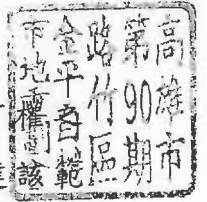 高雄市
第90期
路竹區
金平自範
下地重權𠮷該